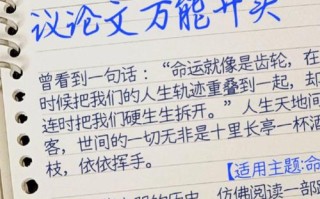 议论文万能开头
曾看到一句话：“命运就像是齿轮，在
时候把我们的人生轨迹重叠到一起，却
连时把我们硬生生拆开。”人生天地间
客，世间的一切无非是十里长亭一杯酒
枝，依依挥手。
【适用主题:命
的历史，仿佛阅读一部